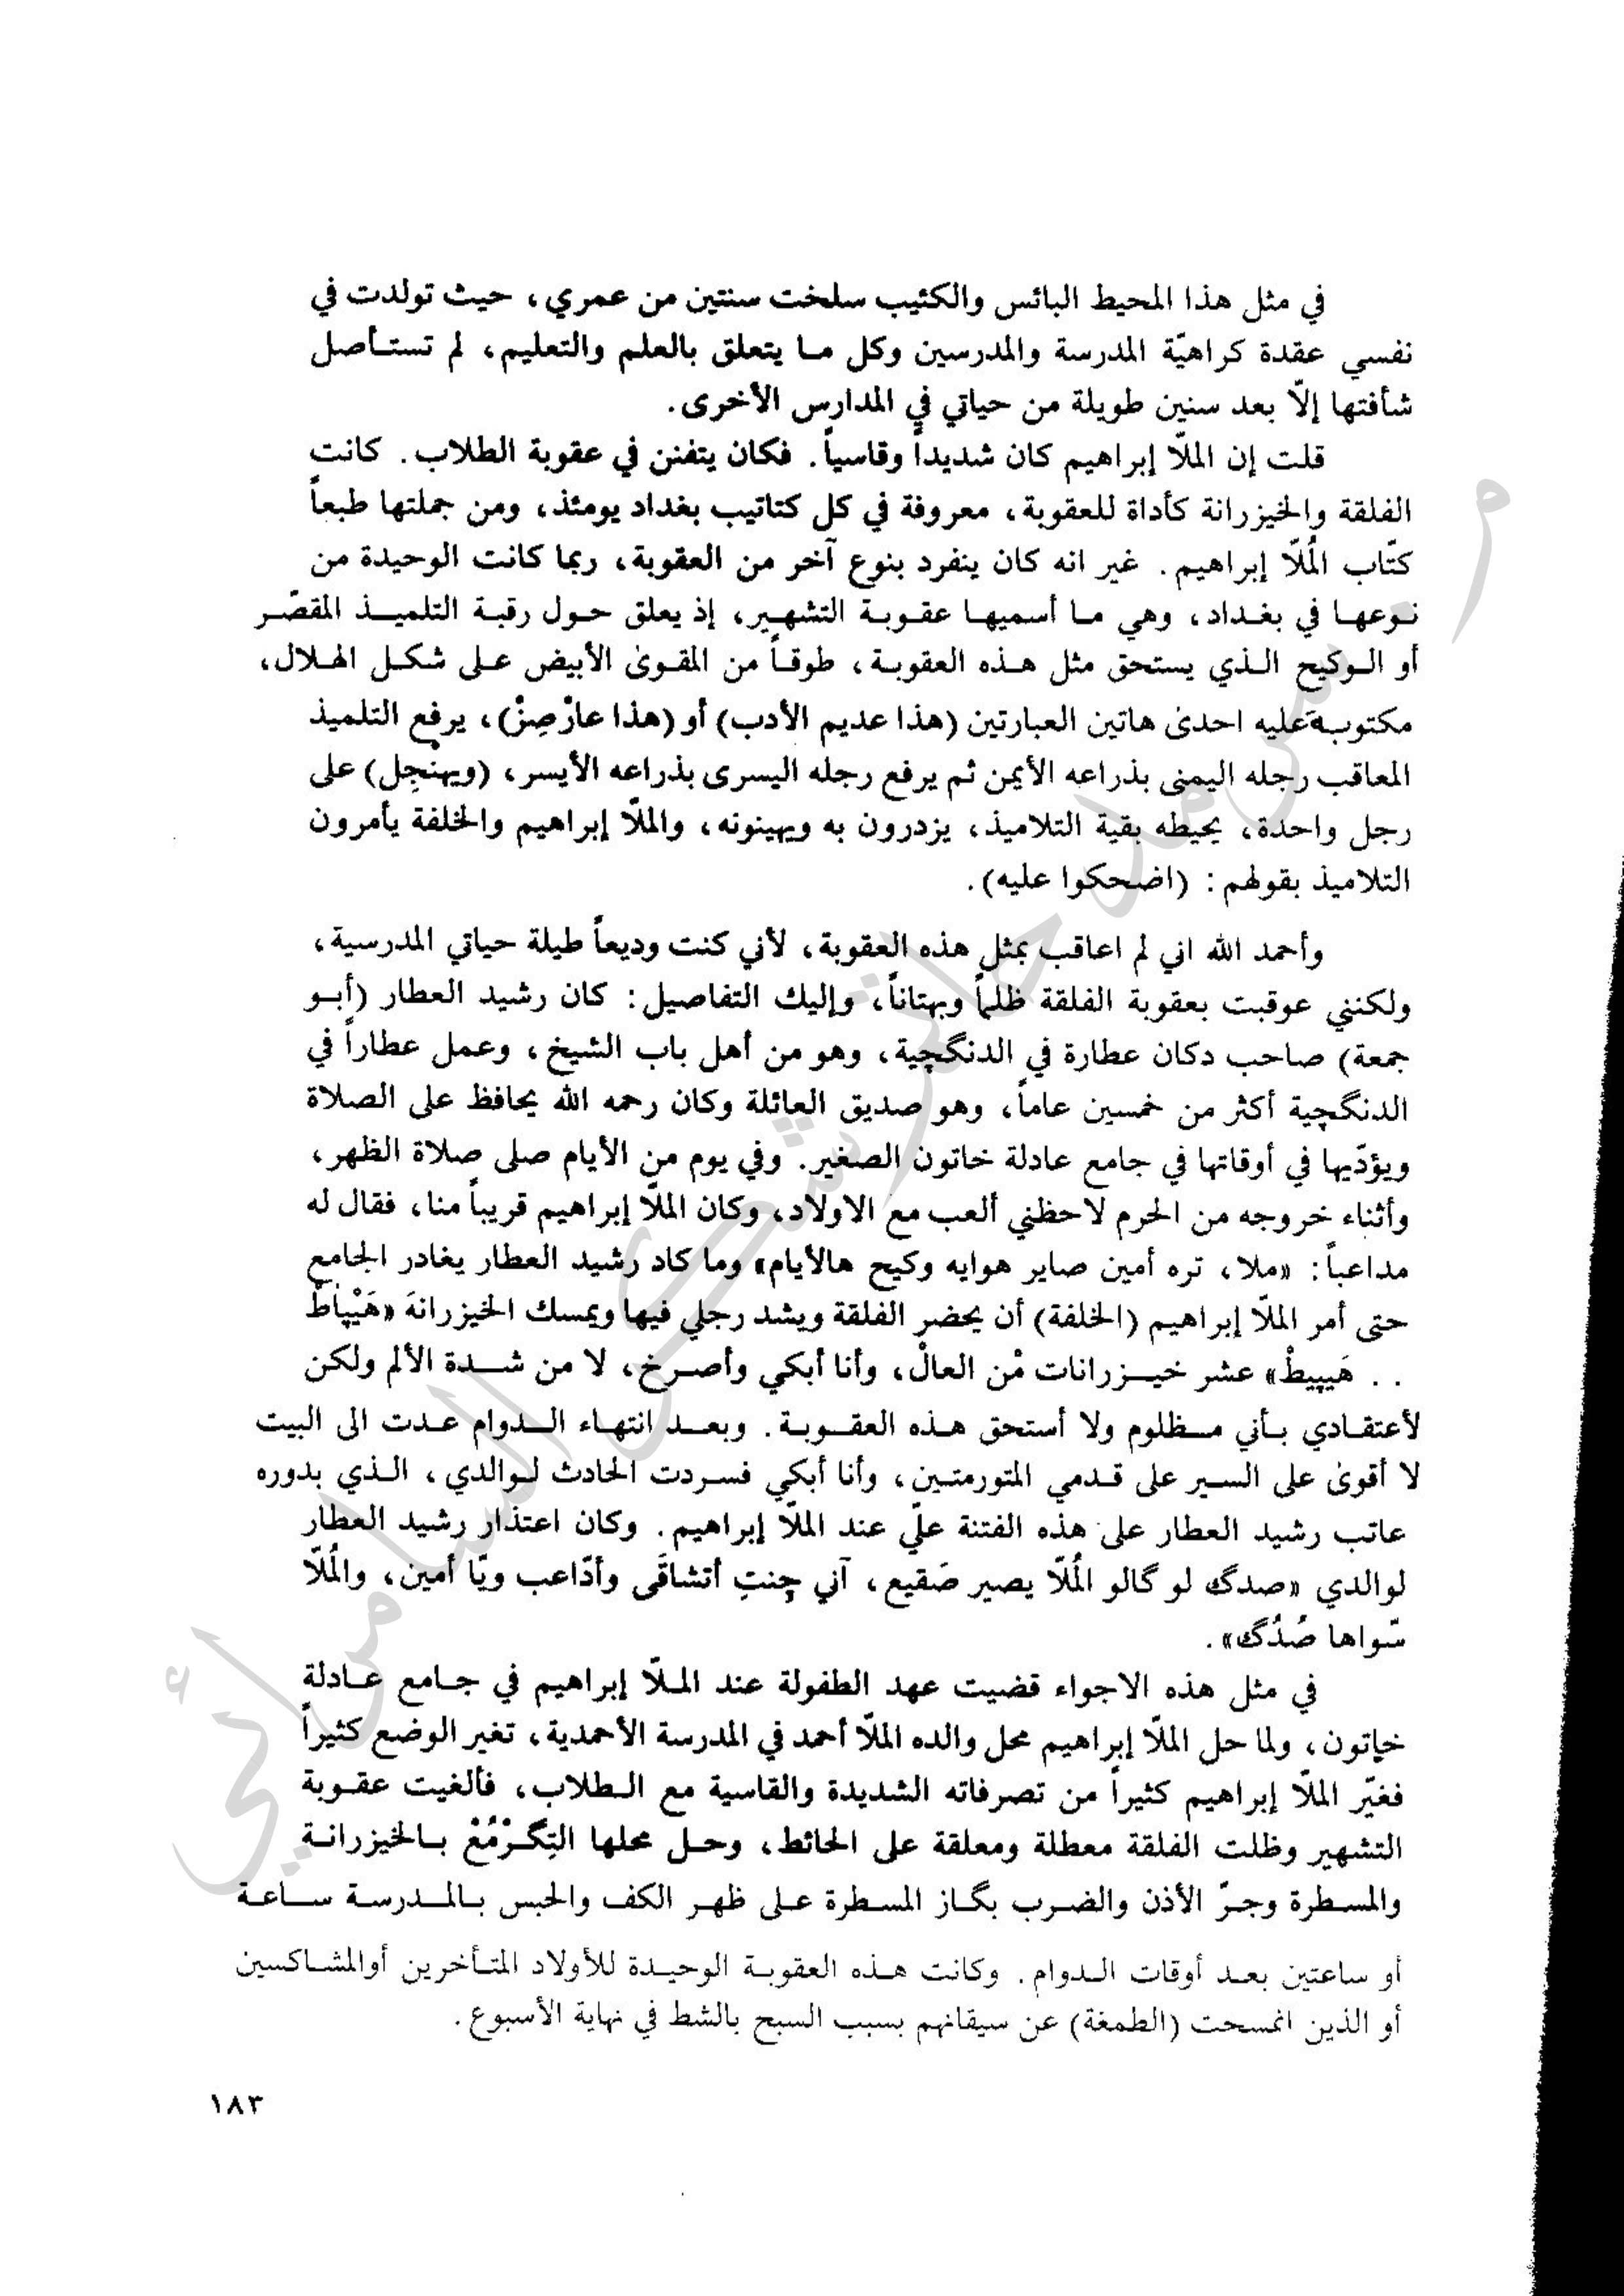 في مثل هذا المحيط البائس والكئيب سلخت سنتين من عمري، حيث تولدت في
نفسي عقدة كراهيّة المدرسة والمدرسين وكل مـا يتعلق بالعلم والتعليم، لم تستـأصل
شأفتها إلّا بعد سنين طويلة من حياتي في المدارس الأخرى.
قلت إن الملّا إبراهيم كان شديداً وقاسياً. فكان يتفنن في عقوبة الطلاب. كانت
الفلقة والخيزرانة كأداة للعقوبة، معروفة في كل كتاتيب بغداد يومئذ، ومن جملتها طبعاً
كتّاب المُلّا إبراهيم. غير انه كان ينفرد بنوع آخر من العقوبة، ربما كانت الوحيدة من
نـوعهـا في بغـداد، وهي مـا أسميهـا عقـوبـة التشهـير، إذ يعلق حـول رقبـة التلميـذ المقصّر
أو الـوكيح الـذي يستحق مثل هـذه العقوبـة، طوقـاً من المقوىٰ الأبيض عـلى شكـل الهـلال،
مكتوبة عليه احدىٰ هاتين العبارتين (هذا عديم الأدب) أو (هذا عارْصِزْ)، يرفع التلميذ
المعاقب رجله اليمنى بذراعه الأيمن ثم يرفع رجله اليسرى بذراعه الأيسر، (ويهنْجِل) على
رجل واحدة، يحيطه بقية التلاميذ، يزدرون به ويهينونه، والملّا إبراهيم والخلفة يأمرون
التلاميذ بقولهم: (اضحكوا عليه).
وأحمد الله اني لم اعاقب بمثل هذه العقوبة، لأني كنت وديعاً طيلة حياتي المدرسية،
ولكنني عوقبت بعقوبة الفلقة ظلماً وبهتاناً، وإليك التفاصيل: كان رشيد العطار (أبـو
جمعة) صاحب دكان عطارة في الدنگچية، وهو من أهل باب الشيخ، وعمل عطاراً في
الدنگچية أكثر من خمسين عاماً، وهو صديق العائلة وكان رحمه الله يحافظ على الصلاة
ويؤدّيها في أوقاتها في جامع عادلة خاتون الصغير. وفي يوم من الأيام صلى صلاة الظهر،
وأثناء خروجه من الحرم لاحظني ألعب مع الاولاد، وكان الملّا إبراهيم قريباً منا، فقال له
مداعباً: «ملا، تره أمين صاير هوايه وكيح هالأيام» وما كاد رشيد العطار يغادر الجامع
حتى أمر الملّا إبراهيم (الخلفة) أن يحضر الفلقة ويشد رجلي فيها ويمسك الخيزرانة «هَيْباطْ
. . هَيبيطْ» عشر خيـزرانات مْن العالْ، وأنا أبكي وأصـرخ، لا من شـدة الألم ولكن
لأعتقـادي بـأني مـظلوم ولا أستحق هـذه العقـوبـة. وبعـد انتهـاء الـدوام عـدت الى البيت
لا أقوىٰ على السـير على قـدمي المتورمتـين، وأنا أبكي فسـردت الحادث لـوالدي، الـذي بدوره
عاتب رشيد العطار على هذه الفتنة علّي عند الملّا إبراهيم. وكان اعتذار رشيد العطار
لوالدي «صدگ لو گالو المُلّا يصير صَقيع، آني چِنتِ أتشاقَى وأدّاعب ويّا أمين، والمُلّا
سّواها صُدُگ».
في مثل هذه الاجواء قضيت عهد الطفولة عند المـلّا إبراهيم في جـامع عـادلة
خاتون، ولما حل الملّا إبراهيم محل والده الملّا أحمد في المدرسة الأحمدية، تغير الوضع كثيراً
فغيّر الملّا إبراهيم كثيراً من تصرفاته الشديدة والقاسية مع الـطلاب، فألغيت عقـوبة
التشهير وظلت الفلقة معطلة ومعلقة على الحائط، وحـل محلها التِگـرْمُعْ بـالخيزرانـة
والمسـطرة وجـرّ الأذن والضـرب بگـاز المسـطرة عـلى ظهـر الكف والحبس بـالمـدرسـة سـاعـة
أو ساعتين بعـد أوقات الـدوام. وكانت هـذه العقوبـة الوحيـدة للأولاد المتـأخرين أوالمشـاكسين
أو الذين انمسحت (الطمغة) عن سيقانهم بسبب السبح بالشط في نهاية الأسبوع.
١٨٣